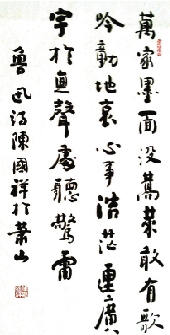 萬家墨面没蒿萊敢有歌
吟動地哀心事浩茫連廣
宇於無聲處聽驚雷
魯迅詩陳國祥於蕭山